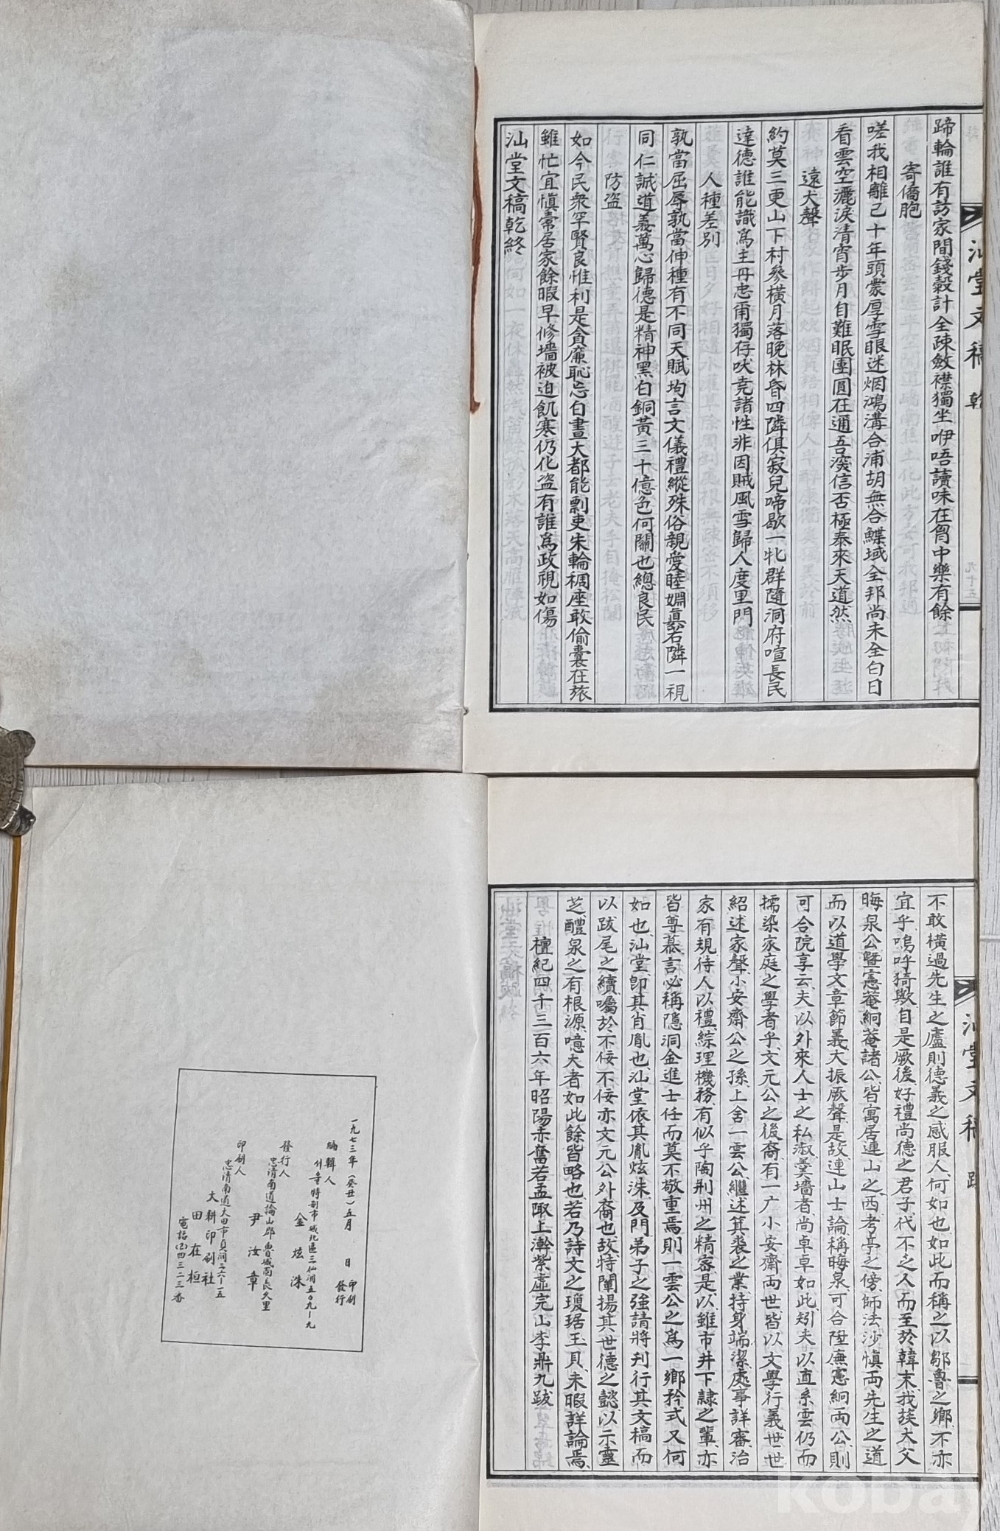 蹄輪誰有訪家間錢穀計全疎斂襟獨坐咿唔讀味在胷中樂有餘
寄僑胞
嗟我相離已十年頭蒙厚雪眼迷烟鴻溝合浦胡無合鰈域全邦尚未全白日
看雲空灑淚清宵步月自難眠團圓在通吾澳信否極泰來天道然
遠犬聲
約莫三更山下村參橫月落晚林昏四隣俱寂兒啼歇一吪群隨洞府喧長民
達德誰能識爲主丹忠爾獨存吠竞諸性非因賊風雪歸人度里門
人種差別
孰當屈辱孰當伸種有不同天賦均言文儀禮縱殊俗親愛睦婣眞右隣一視
同仁誠道義萬心歸德是精神黑白銅黃三十億色何關也總良民
防盜
如今民衆罕賢良惟利是貪廉恥忘白晝大都能剽吏朱輪稠座敢偷囊在旅
雖忙宜愼常居家餘暇早修墻被迫飢寒仍化盜有誰爲政視如傷
汕堂文稿乾終
汕堂文稿 乾
九十五
不敢橫過先生之廬則德義之感服人何如也如此而稱之以鄒魯之鄕不亦
宜乎嗚呼猗歟自是厥後好禮尚德之君子代不乏人而至於韓末我族大父
晦泉公曁憲菴絅菴諸公皆寓居連山之西考亭之傍師法沙愼两先生之道
而以道學文章節義大振厥聲是故連山士論稱晦泉可合陞廡憲絅两公則
可合院享云夫以外來人士之私淑羹墻者尚卓卓如此矧夫以直系雲仍而
擩染家庭之學者乎文元公之後裔有一广小安齋两世皆以文學行義世世
紹述家聲小安齋公之孫上舍一雲公繼述箕裘之業持身端潔處事詳審治
家有規待人以禮綜理機務有似乎陶荆州之精審是以雖市井下隷之輩亦
皆尊慕言必稱隱洞金進士任而莫不敬重焉則一雲公之爲一鄕矜式又何
如也汕堂卽其肖胤也汕堂依其胤炫洙及門弟子之強請將刊行其文稿而
以跋尾之續囑於不佞不佞亦文元公外裔也故特闡揚其世德之懿以示靈
芝醴泉之有根源噫大者如此餘皆略也若乃詩文之瓊琚玉貝未暇詳論焉
檀紀四千三百六年昭陽赤奮若孟陬上澣紫虛完山李鼎九跋
汕堂文稿 跋
一九七三年(癸丑)五月 日 印刷 發行
編輯人
서울特別市城北區三仙洞五0九ー九
金炫洙
發行人
忠淸南道論山郡魯城面長久里
尹汝章
印刷人
忠淸南道大田市貞洞三六ー一五
大耕印刷社
田在桓
電話(2)四三二三番